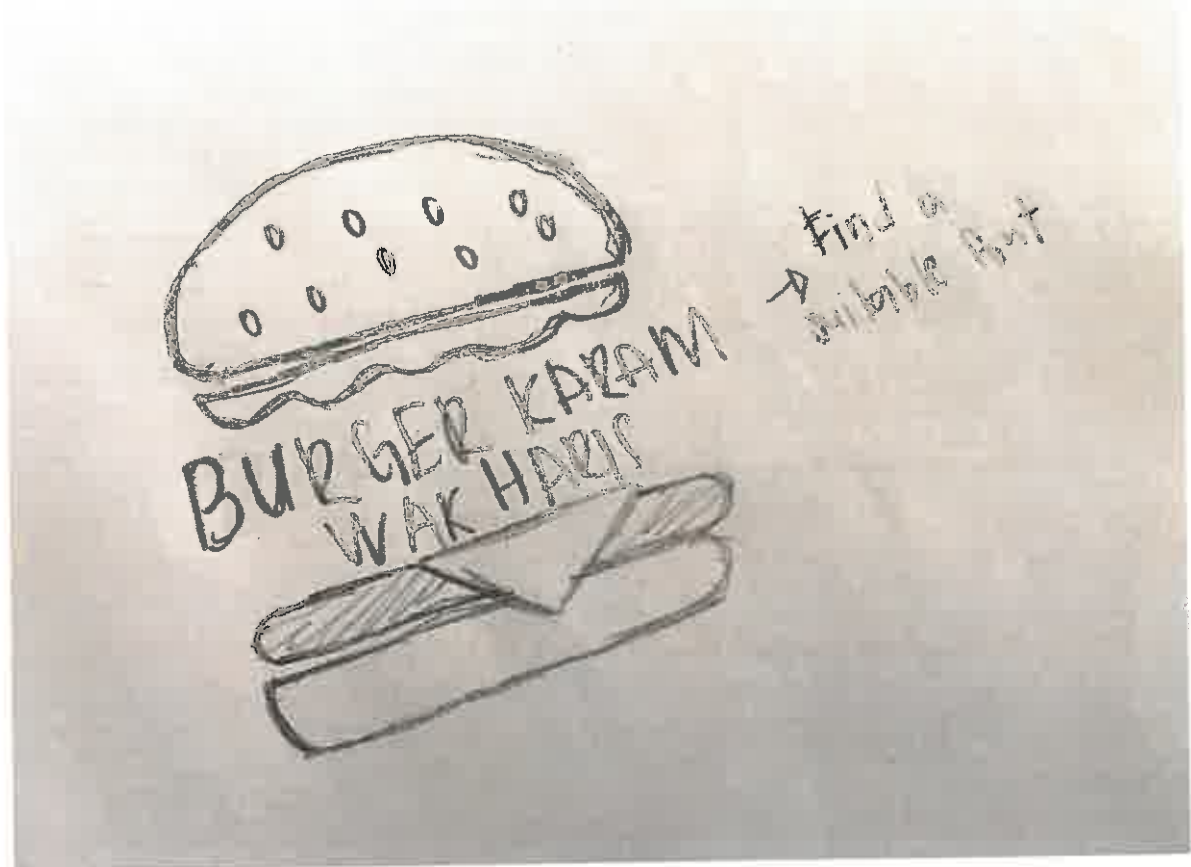 BURGER KARAM
WAK HARIS
Find a
suitable font